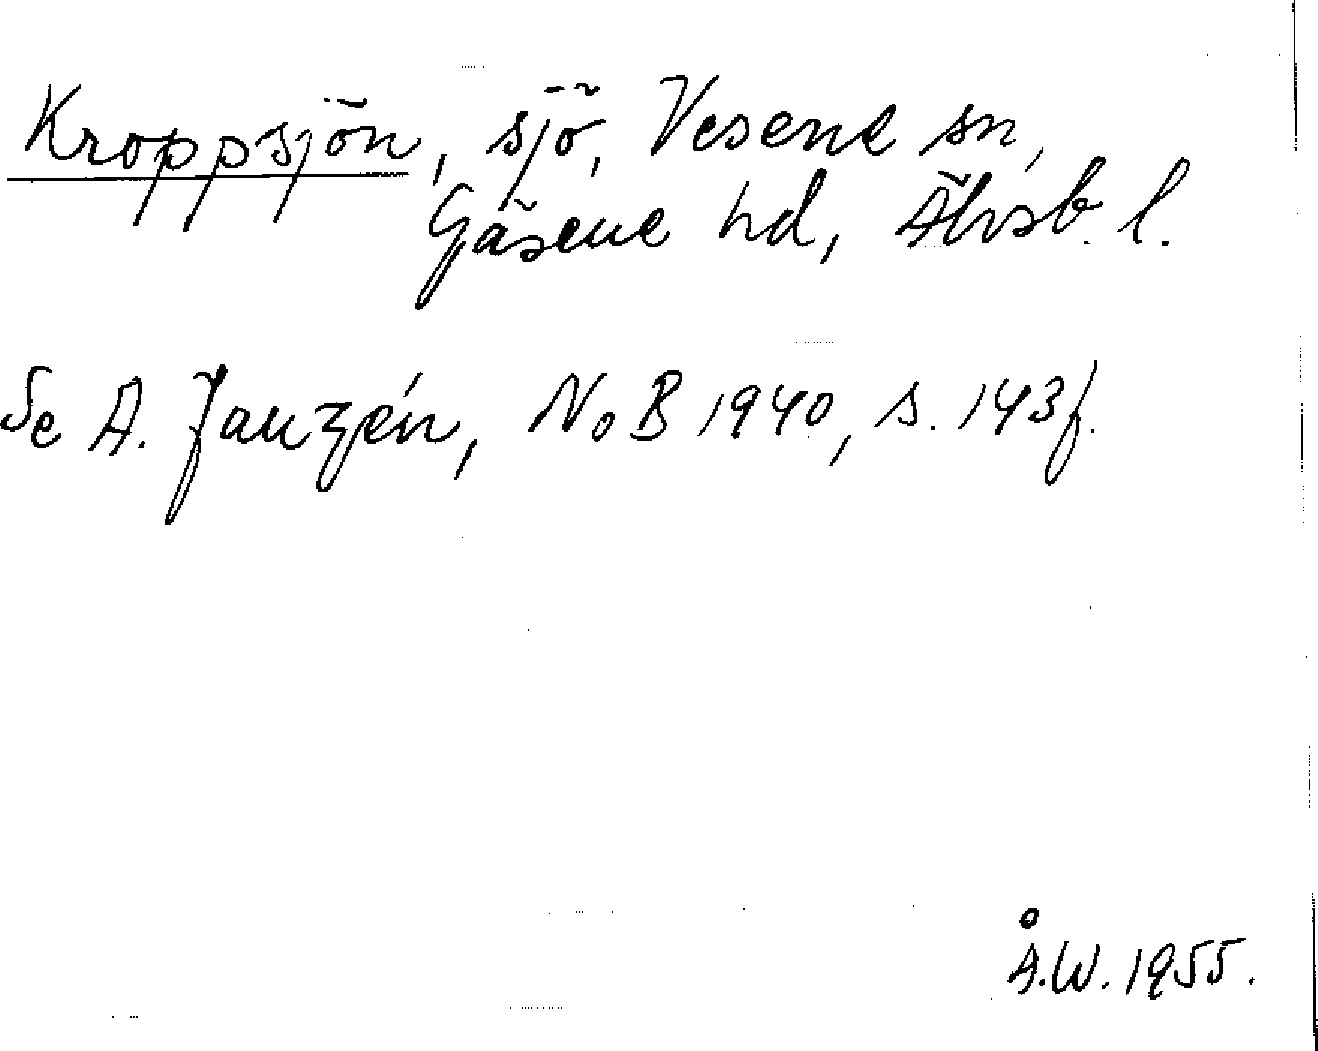 Kroppsjön, sjö, Vesene sn,
Gäsene hd, Älvsb. l.
Se A. Janzén, NoB 1940, s. 143 f.
Å.W. 1955.